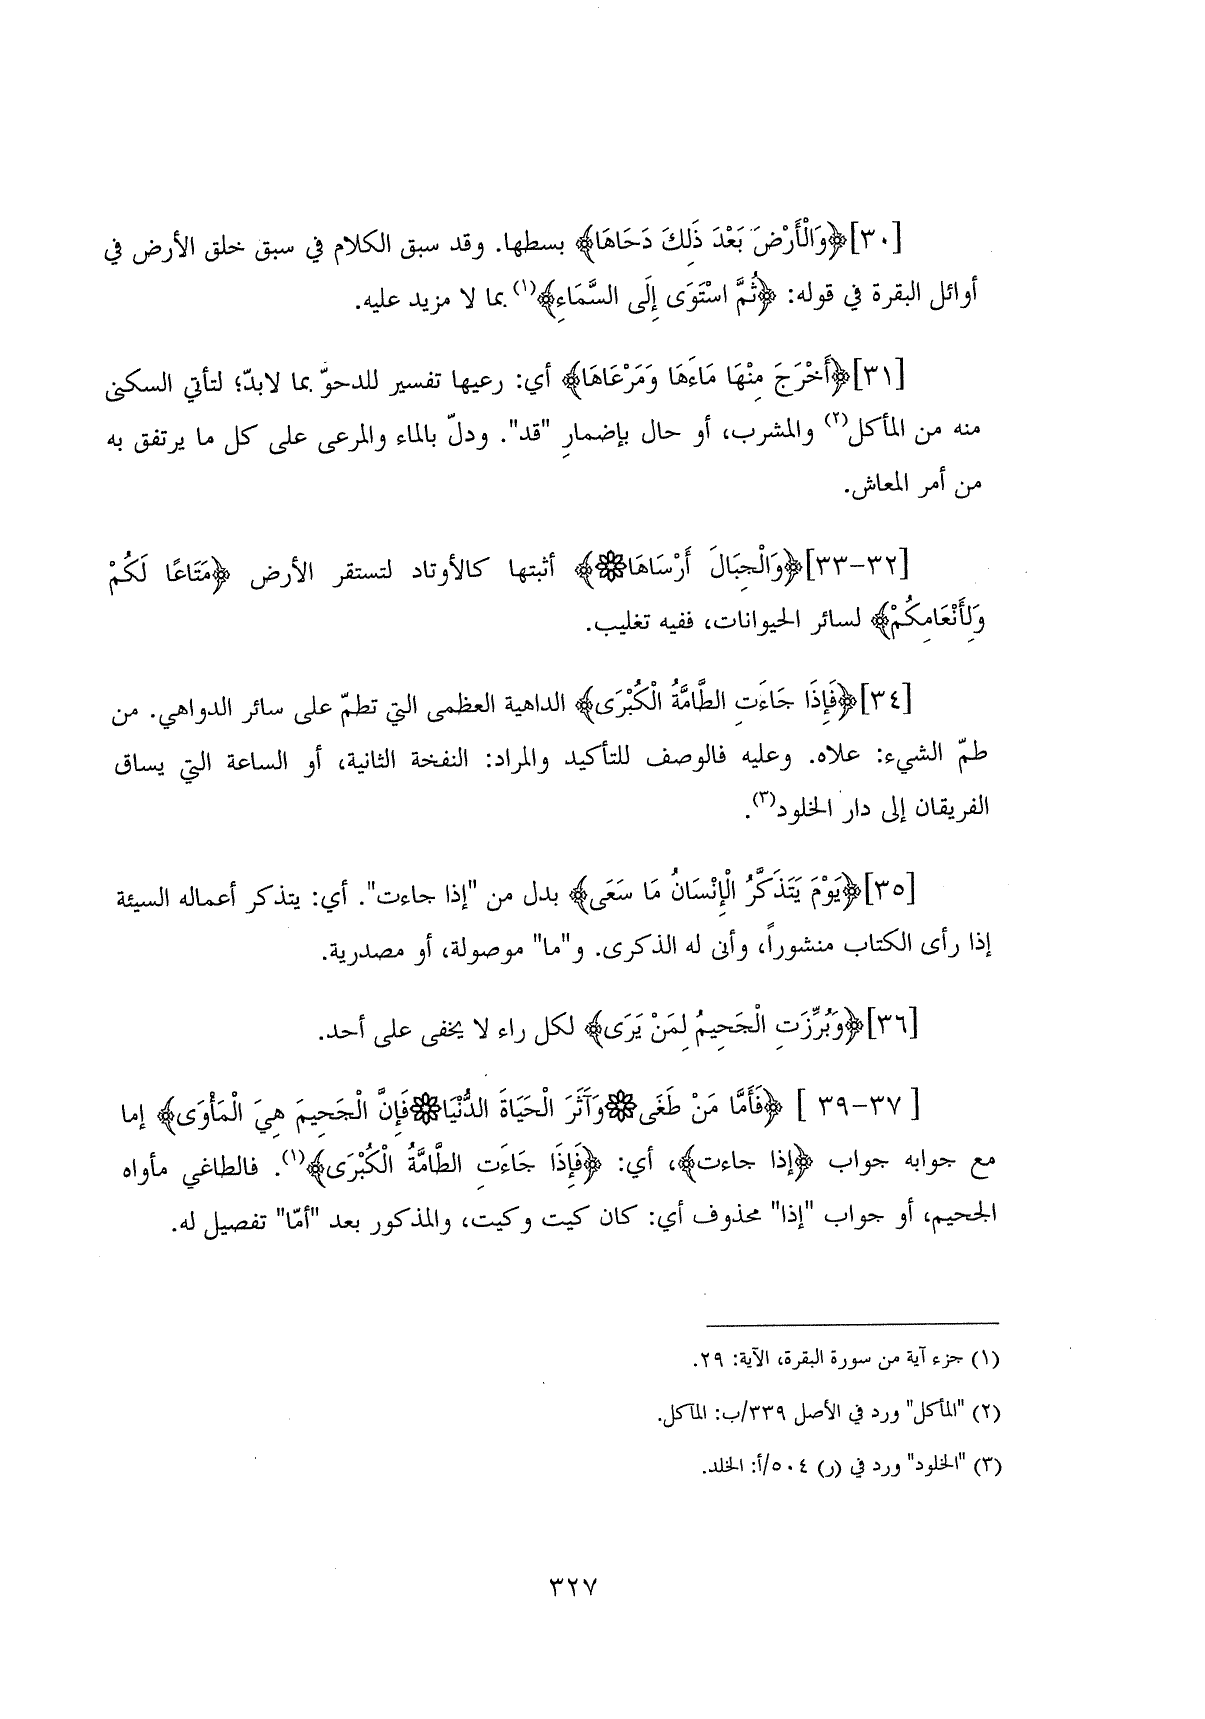 [٣٠]﴿وَالْأَرْضَ بَعْدَ ذَلِكَ دَحَاهَا﴾ بسطها. وقد سبق الكلام في سبق خلق الأرض في
أوائل البقرة في قوله: ﴿ثُمَّ اسْتَوَى إِلَى السَّمَاءِ﴾(١) بما لا مزيد عليه.
[٣١]﴿أَخْرَجَ مِنْهَا مَاءَهَا وَمَرْعَاهَا﴾ أي: رعيها تفسير للدحوّ بما لابدّ؛ لتأتي السكنى
منه من المأكل(٢) والمشرب، أو حال بإضمارِ "قد". ودلّ بالماء والمرعى على كل ما يرتفق به
من أمر المعاش.
[٣٢-٣٣]﴿وَالْجِبَالَ أَرْسَاهَا❁﴾ أثبتها كالأوتاد لتستقر الأرض ﴿مَتَاعًا لَكُمْ
وَلِأَنْعَامِكُمْ﴾ لسائر الحيوانات، ففيه تغليب.
[٣٤]﴿فَإِذَا جَاءَتِ الطَّامَّةُ الْكُبْرَى﴾ الداهية العظمى التي تطمّ على سائر الدواهي. من
طمّ الشيء: علاه. وعليه فالوصف للتأكيد والمراد: النفخة الثانية، أو الساعة التي يساق
الفريقان إلى دار الخلود(٣).
[٣٥]﴿يَوْمَ يَتَذَكَّرُ الْإِنْسَانُ مَا سَعَى﴾ بدل من "إذا جاءت". أي: يتذكر أعماله السيئة
إذا رأى الكتاب منشوراً، وأنى له الذكرى. و"ما" موصولة، أو مصدرية.
[٣٦]﴿وَبُرِّزَتِ الْجَحِيمُ لِمَنْ يَرَى﴾ لكل راء لا يخفى على أحد.
[٣٧-٣٩ ] ﴿فَأَمَّا مَنْ طَغَى❁وَآَثَرَ الْحَيَاةَ الدُّنْيَا❁فَإِنَّ الْجَحِيمَ هِيَ الْمَأْوَى﴾ إما
مع جوابه جواب ﴿إذا جاءت﴾، أي: ﴿فَإِذَا جَاءَتِ الطَّامَّةُ الْكُبْرَى﴾(١). فالطاغي مأواه
الجحيم، أو جواب "إذا" محذوف أي: كان كيت وكيت، والمذكور بعد "أمّا" تفصيل له.
(١) جزء آية من سورة البقرة، الآية: ٢٩.
(٢) "المأكل" ورد في الأصل ٣٣٩/ب: المآكل.
(٣) "الخلود" ورد في (ر) ٥٠٤/أ: الخلد.
٣٢٧